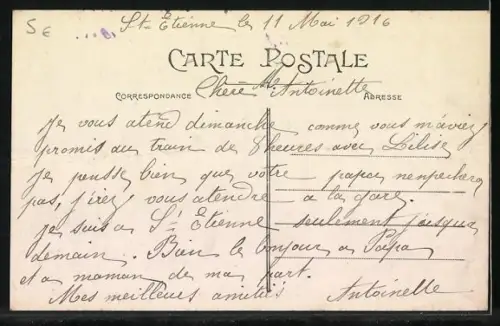 5€
St-Etienne le 11 Mai 1916
CARTE POSTALE
CORRESPONDANCE
ADRESSE
Chère Mlle Antoinette
Je vous atend dimanche comme vous m'aviez
promis au train de 8 heures avec
je pensse bien que vôtre papa nenpechera
pas, j'irez vous atendre a la gare.
je suis a St Etienne seulement jusqua
demain. Bien le bonjour a Papa
et a maman de ma part.
Mes meilleurs amitiés Antoinette